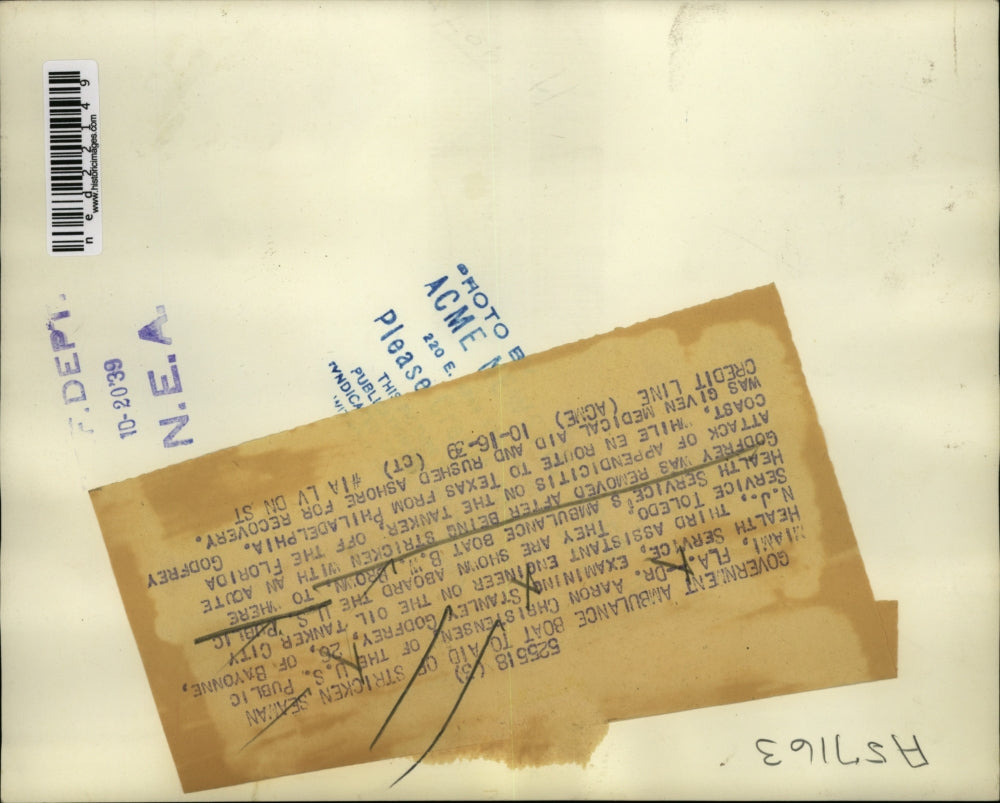 ned22149
www.historicimages.com
F. DEPT.
10-20 39
N.E.A.
PHOTO B
ACME N
220 E.
Please
THIS
PUBLI
SYNDICA
525518 (S)
GOVERNMENT AMBULANCE BOAT TO AID OF STRICKEN SEAMAN
MIAMI, FLA. DR. AARON CHRISTENSEN OF THE U.S. PUBLIC
HEALTH SERVICE, EXAMINING STANLEY GODFREY, 26, OF BAYONNE,
N.J., THIRD ASSISTANT ENGINEER ON THE OIL TANKER CITY
SERVICE TOLEDO. THEY ARE SHOWN ABOARD THE U.S. PUBLIC
HEALTH SERVICE'S AMBULANCE BOAT BROWN TO WHERE
GODFREY WAS REMOVED AFTER BEING STRICKEN WITH AN ACUTE
ATTACK OF APPENDICITIS ON THE TANKER, OFF THE FLORIDA
COAST, WHILE EN ROUTE TO TEXAS FROM PHILADELPHIA. GODFREY
WAS GIVEN MEDICAL AID AND RUSHED ASHORE FOR RECOVERY.
CREDIT LINE (ACME) 10-16-39 (CT) #1A LV DN ST
A57163